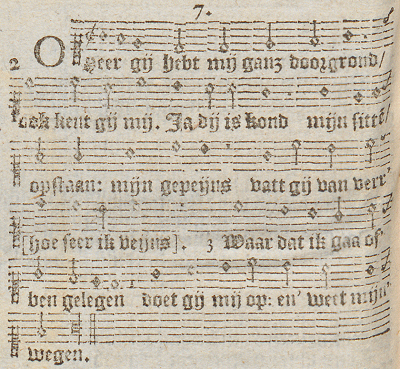 7.
2 O Heer gij hebt mij ganz doorgrond/
ook kent gij mij. Ja dij is kond mijn sitte/
opstaan: mijn gepeijns vatt gij van verr'
[hoe seer ik veijns]. 3 Waar dat ik gaa of'
ben gelegen doet gij mij op: en' weet mijn'
wegen.